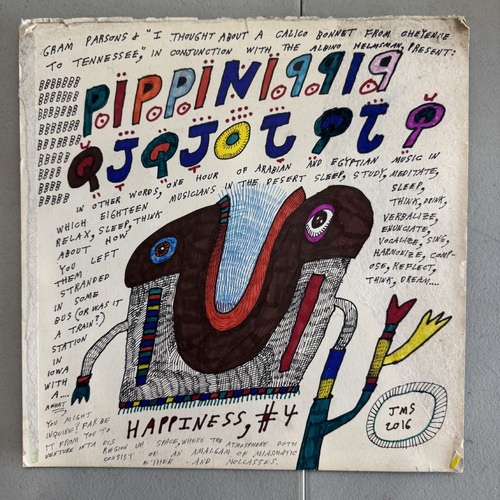 GRAM PARSONS & "I THOUGHT ABOUT A CALICO BONNET FROM CHEYENNE
TO TENNESSEE," IN CONJUNCTION WITH THE ALBINO HELMSMAN, PRESENT:
BBBBBBB
PIPPINI
IN OTHER WORDS, ONE HOUR OF ARABIAN AND EGYPTIAN MUSIC IN
WHICH EIGHTEEN MUSICIANS IN THE DESERT SLEEP, STUDY, MEDITATE,
RELAX, SLEEP, THINK
SLEEP,
ABOUT HOW
THINK, DRINK,
YOU LEFT
VERBALIZE,
THEM
ENUNCIATE,
STRANDED
VOCALIZE, SING,
IN SOME
HARMONIZE, COMP-
BUS (OR WAS IT
OSE, REFLECT,
A TRAIN?)
THINK, DREAM...
STATION
IN
IOWA
WITH
A....
HAPPINESS, #4
JMS
2016
YOU MIGHT
INQUIRE? FAR BE
IT FROM YOU TO
VENTURE INTA DIS REGION UH SPACE, WHERE THE ATMOSPHERE DOTH
CONSIST OF AN AMALGAM OF MIASMATIC
ETHER AND MOLLASSES.